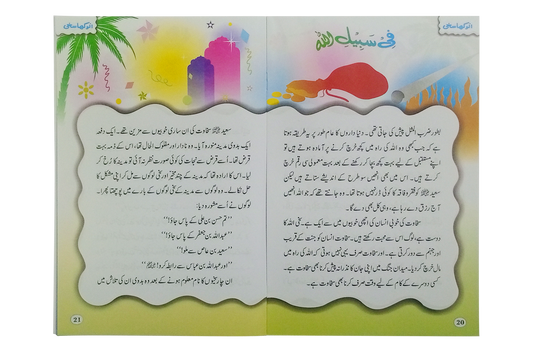 فِیْ سَبِیْلِ اللہ
بطور ضرب المثل پیش کی جاتی تھی۔ دنیا داروں کا عام طور پر یہ طریقہ ہوتا
ہے کہ جب بھی وہ اللہ کی راہ میں کچھ خرچ کرنے پر آمادہ ہوتے ہیں تو
اپنے مستقبل کے لیے بہت کچھ بچا کر رکھنے کے بعد بہت معمولی سی رقم خرچ
کرتے ہیں۔ اس میں بھی انھیں سو طرح کے اندیشے ستاتے ہیں لیکن
سعید کو فقر و فاقہ کا کوئی ڈر نہیں ہوتا تھا۔ وہ جانتے تھے کہ جو اللہ انھیں
آج رزق دے رہا ہے، وہی کل بھی دے گا۔
سخاوت کی خوبی انسان کی اچھی خوبیوں میں سے ایک ہے۔ سخی اللہ کا
دوست ہے، لوگ اس سے محبت رکھتے ہیں۔ سخاوت انسان کو جنت کے قریب
اور جہنم سے دور کرتی ہے۔ اور سخاوت صرف یہی نہیں ہوتی کہ اللہ کی راہ میں
مال خرچ کر دیا۔ میدان جنگ میں اپنی جان کا نذرانہ پیش کرنا بھی سخاوت ہے۔
کسی دوسرے کے کام کے لیے وقت صرف کرنا بھی سخاوت ہے۔
20
انوکھا سخی
سعید سخاوت کی ان ساری خوبیوں سے مزین تھے۔ ایک دفعہ
ایک بدوی مدینہ منورہ آیا۔ وہ نادار اور مفلوک الحال تھا، اس کے ذمہ بہت
قرض تھا۔ اسے قرض سے نجات کی کوئی صورت نظر نہ آئی تو مدینہ کا رخ کر
لیا۔ اس کا ارادہ تھا کہ مدینہ کے چند مخیر اور سخی لوگوں سے مل کر اپنی مشکل کا
حل نکالے۔ وہ لوگوں سے مدینہ کے سخی لوگوں کے بارے میں پوچھتا پھرا۔
لوگوں نے اُسے مشورہ دیا:
"تم حسن بن علی کے پاس جاؤ!"
"عبداللہ بن جعفر کے پاس جاؤ!"
"سعید بن عاص سے ملو!"
"اور عبداللہ بن عباس سے رابطہ کرو!"
ان چار سخیوں کا نام معلوم ہونے کے بعد وہ بدوی ان کی تلاش میں
21